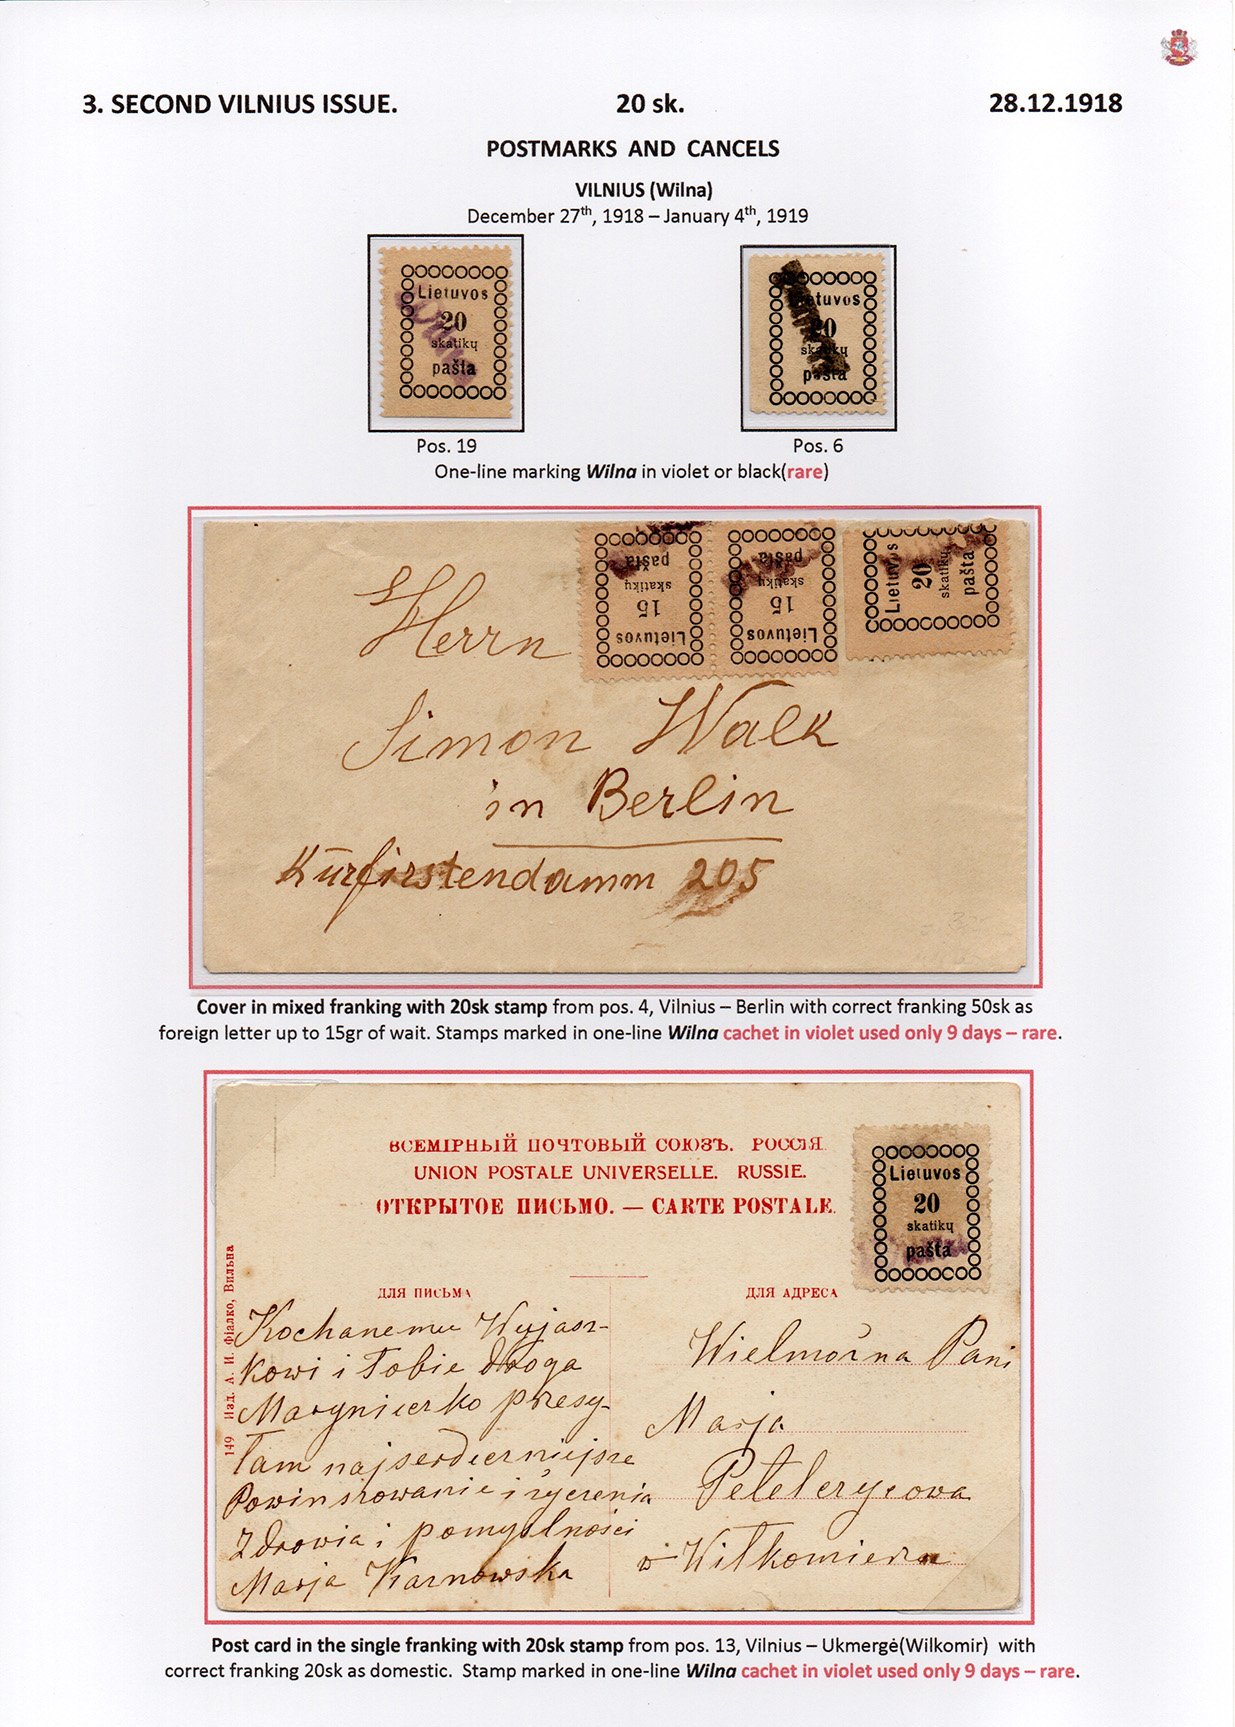 3. SECOND VILNIUS ISSUE. 20 sk. 28.12.1918
POSTMARKS AND CANCELS
VILNIUS (Wilna)
December 27th, 1918 – January 4th, 1919
Lietuvos
20
skatikų
pašta
Lietuvos
20
skatikų
pašta
Pos. 19
Pos. 6
One-line marking Wilna in violet or black(rare)
Lietuvos
15
skatikų
pašta
Lietuvos
15
skatikų
pašta
Lietuvos
20
skatikų
pašta
Herrn
Simon Walk
in Berlin
Kürfirstendamm 205
Cover in mixed franking with 20sk stamp from pos. 4, Vilnius – Berlin with correct franking 50sk as
foreign letter up to 15gr of wait. Stamps marked in one-line Wilna cachet in violet used only 9 days – rare.
ВСЕМІРНЫЙ ПОЧТОВЫЙ СОЮЗЪ. РОССІЯ.
UNION POSTALE UNIVERSELLE. RUSSIE.
ОТКРЫТОЕ ПИСЬМО. — CARTE POSTALE.
Lietuvos
20
skatikų
pašta
149 Изд. А. И. Фіалко, Вильна
ДЛЯ ПИСЬМА
ДЛЯ АДРЕСА
Kochanemu Wujasz-
kowi i Tobie droga
Marynieczko przesy-
łam najserdeczniejsze
Powinszowanie i życzenia
Zdrowia i pomyślności
Marja Karnowska
Wielmożna Pani
Marja
w Wiłkomierzu
Post card in the single franking with 20sk stamp from pos. 13, Vilnius – Ukmergė(Wilkomir) with
correct franking 20sk as domestic. Stamp marked in one-line Wilna cachet in violet used only 9 days – rare.